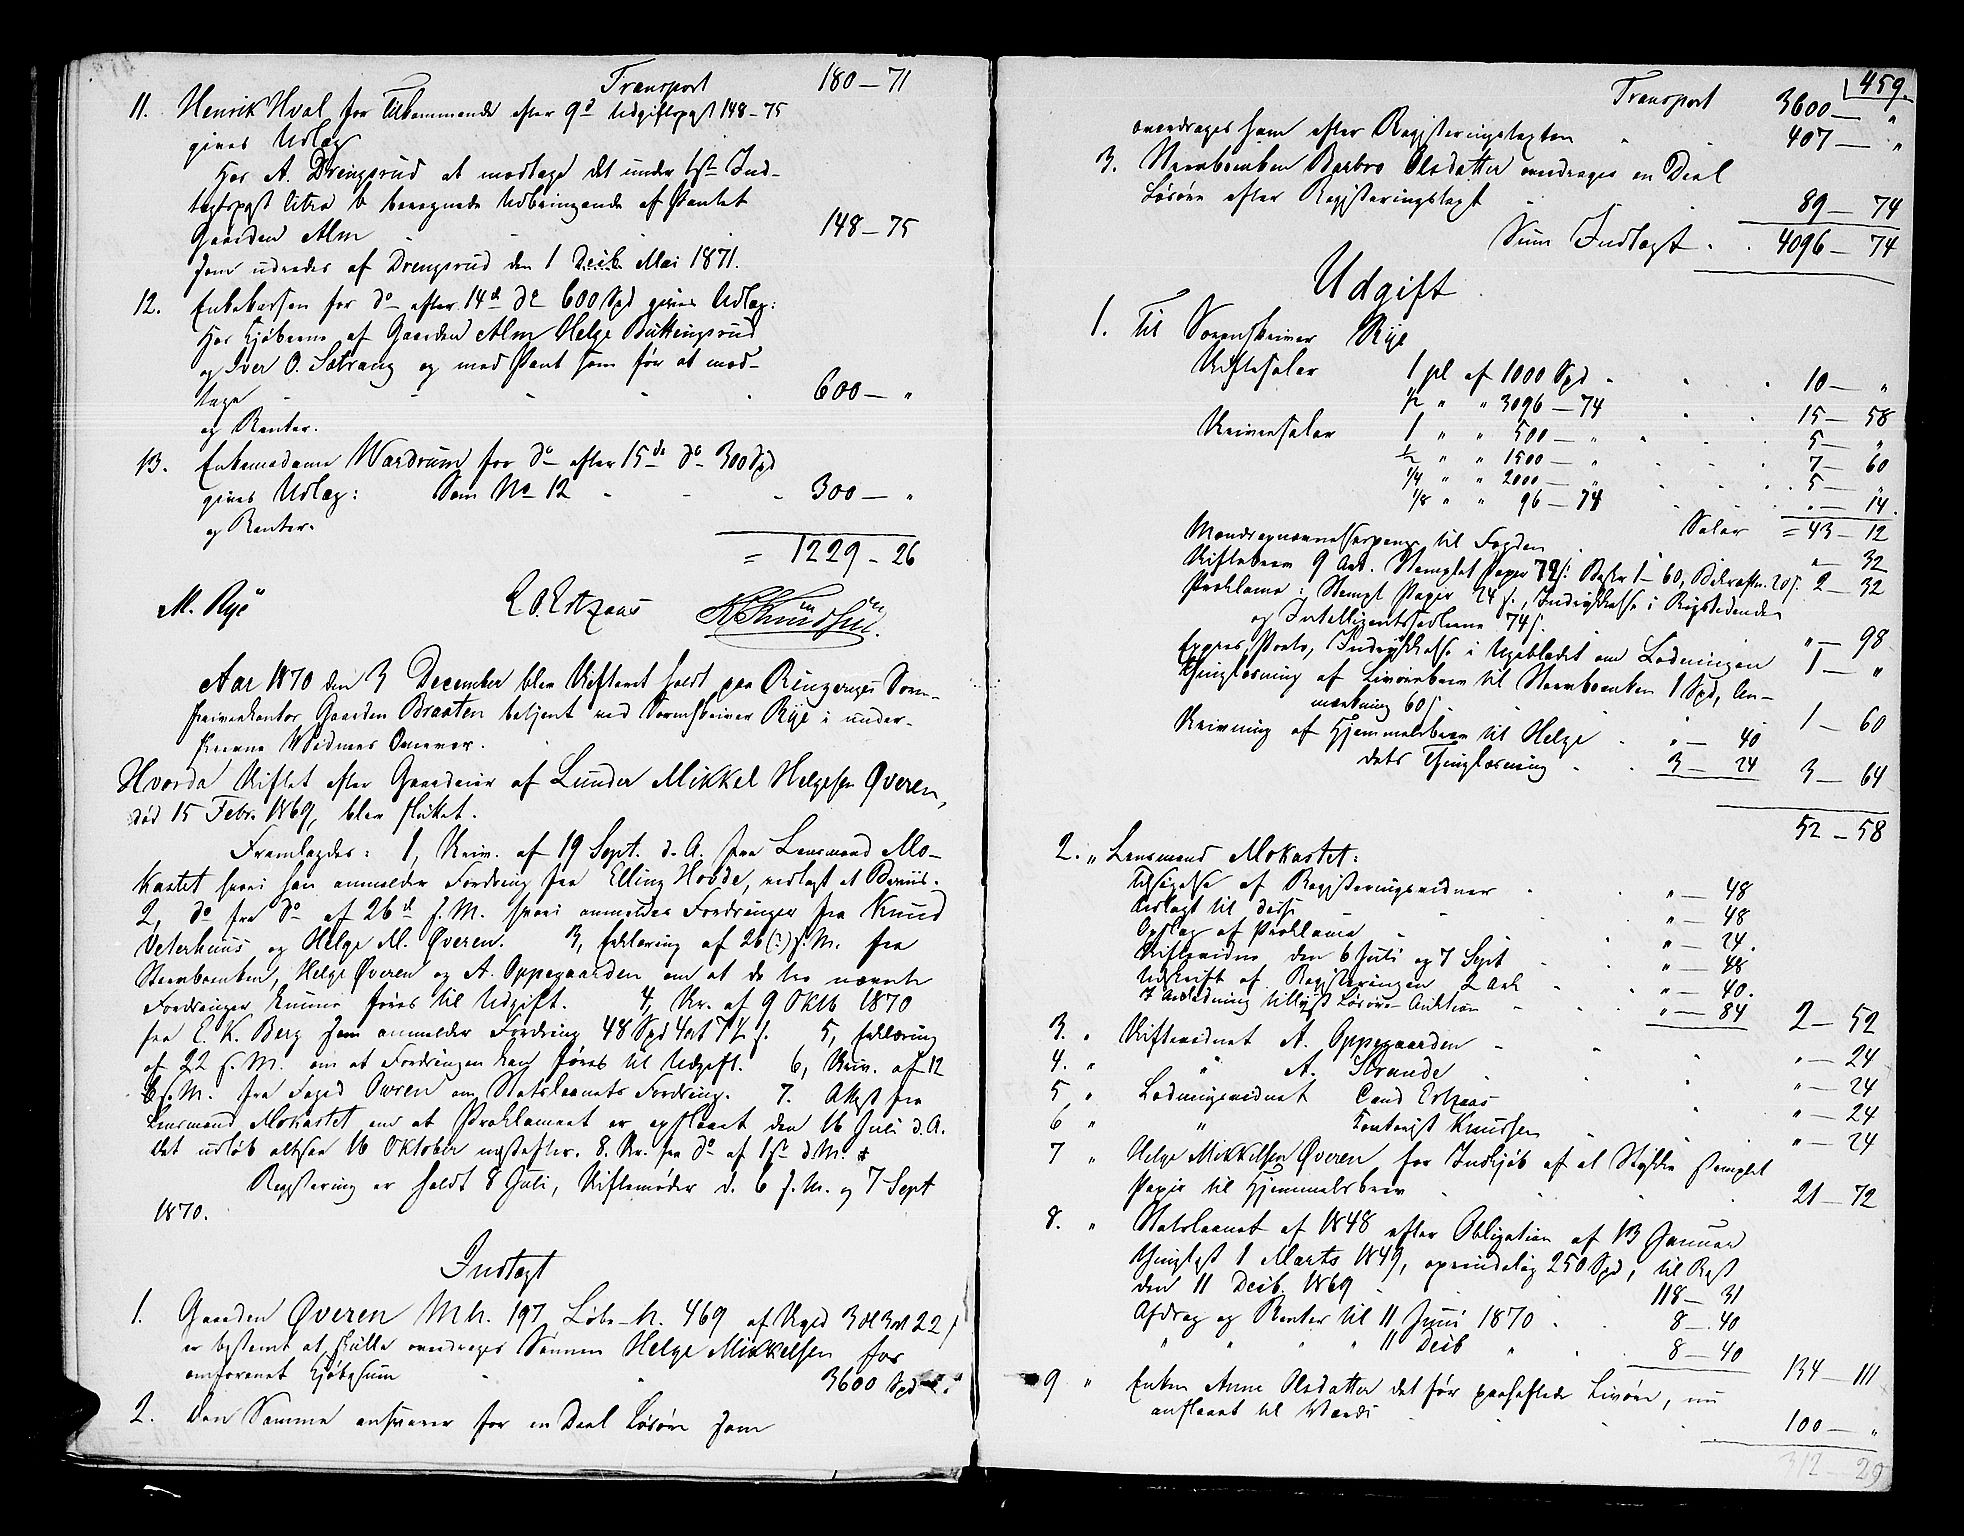 Transport 180 — 71
11. Henrik Hval for Tilkommende efter 9d Udgiftspost 148-75
gives Udlæg
Hos A. Drengsrud at modtage det under 1ste Ind-
tægtspost litra b beregnede Udbringende af Pantet
Gaarden Alm 148 — 75
som udredes af Drengsrud den 1 Mai 1871.
12. Enkekassen for do efter 14d do 600 Spd gives Udlæg:
Hos Kjøberne af Gaarden Alm Helge Buttingsrud
og Iver O. Sætrang og med Pant som før at mod-
tage 600 — "
og Renter.
13. Enkemadame Wardrum for do efter 15de do 300 Spd
gives Udlæg: Som No 12 300 — "
og Renter.
= 1229 — 26
M. Rye
Aar 1870 den 3 December blev Skifteret holdt paa Ringeriges Soren-
skriverkontor Gaarden Braaten betjent ved Sorenskriver Rye i under-
skrevne Vidners Overvær.
Hvorda Skiftet efter Gaardeier af Lunder Mikkel Helgesen Øveren,
død 15 Febr. 1869, blev sluttet.
Fremlagdes: 1, Skriv. af 19 Sept. d. A. fra Lensmand Mo-
kastet hvori han anmelder Fordring fra Elling Hovde, vedlagt et Beviis.
2, do fra do af 26d s. M. hvori anmeldes Fordringer fra Knud
Veterhuus og Helge M. Øveren. 3, Erklæring af 26(?) s. M. fra
Stervboenken, Helge Øveren og A. Oppegaarden om at de tre nævnte
Fordringer kunne føres til Udgift. 4, Skr. af 9 Oktb 1870
fra E. K. Berg som anmelder Fordring 48 Spd 4 ort 7½ s. 5, Erklæring
af 22 s. M. om at Fordringen kan føres til Udgift. 6, Skriv. af 12
s. M. fra Foged Owren om Statslaanets Fordring. 7. Attest fra
Lensmand Mokastet om at Proklamaet er opslaaet den 16 Juli d. A.
det udløb altsaa 16 Oktober næstefter. 8. Skr. fra do af 1ste d. M.
Registering er holdt 8 Juli, Skiftemøder d. 6 s. M. og 7 Sept
1870.
Indtægt
1. Gaarden Øveren M.N. 197, Løbe-N. 469 af Skyld 3 dl 3 ort 22 s
er bestemt at skulle overdrages Sønnen Helge Mikkelsen for
omforenet Kjøbesum 3600 Spd
2. Den Samme ansvarer for en Deel Løsøre som
459.
Transport 3600 — "
overdrages ham efter Registeringstaxten 407 — "
3. Stervboenken Barbro Olsdatter overdrages en Deel
Løsøre efter Registeringstaxt 89 — 74
Sum Indtægt 4096 — 74
Udgift
1. Til Sorenskriver Rye
Skiftesalær 1 pct af 1000 Spd 10 — "
½ " " 3096 — 74 15 — 58
Skriversalær 1 " " 500 — " 5 — "
½ " " 1500 — " 7 — 60
¼ " " 2000 — " 5 — "
⅛ " " 96 — 74 " — 14
Salær = 43 — 12
Mændsopnævnelsespenge til Fogden " — 32
Skiftebrev 9 Ark. Stemplet Papir 72 s. Beskr 1-60, Bekræftn. 20 s. 2 — 32
Proklama: Stempl. Papir 24 s., Indrykkelse i Rigstidende
og Intelligentssedlerne 74 s. " — 98
Expres, Porto, Indrykkelse i Ugebladet om Lodningen 1 — "
Thinglæsning af Livørebrev til Stervboenken 1 Spd, An-
mærkning 60 s. 1 — 60
Skrivning af Hjemmelsbrev til Helge " — 40
dets Thinglæsning 3 — 24 3 — 64
52 — 58
2. " Lensmand Mokastet:
Tilsigelse af Registeringsvidner " — 48
Udlagt til disse " — 48
Opslag af Proklama " — 24.
Skiftevidne den 6 Juli og 7 Sept " — 48
Udskrift af Registeringen 2 Ark " — 40.
I Anledning tillyst Løsøre Auktion " — 84 2 — 52
3. " Skiftevidnet A. Oppegaarden " — 24
4. " " A. Strande " — 24
5 " Lodningsvidnet Cand " — 24
6 " " Kontorist Knudsen " — 24
7 " Helge Mikkelsen Øveren for Indkjøb af et Stykke stemplet
Papir til Hjemmelsbrev 21 — 72
8. " Statslaanet af 1848 efter Obligation af 13 Januar
thinglæst 1 Marts 1849, oprindelig 250 Spd, til Rest
den 11 Decb. 1869 118 — 31
Afdrag og Renter til 11 Juni 1870 8 — 40
" " " " 11 Decb " 8 — 40 134 — 111
9 " Enken Anne Olsdatter det før paaheftede Livøre, nu
anslaaet til Værdi 100 — "
312 — 29